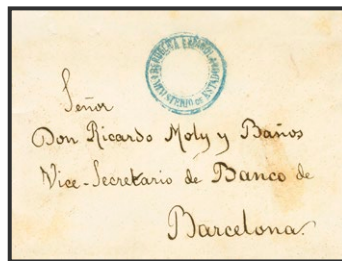 Señor
Don Ricardo Moly y Baños
Vice-Secretario de Banco de
Barcelona.